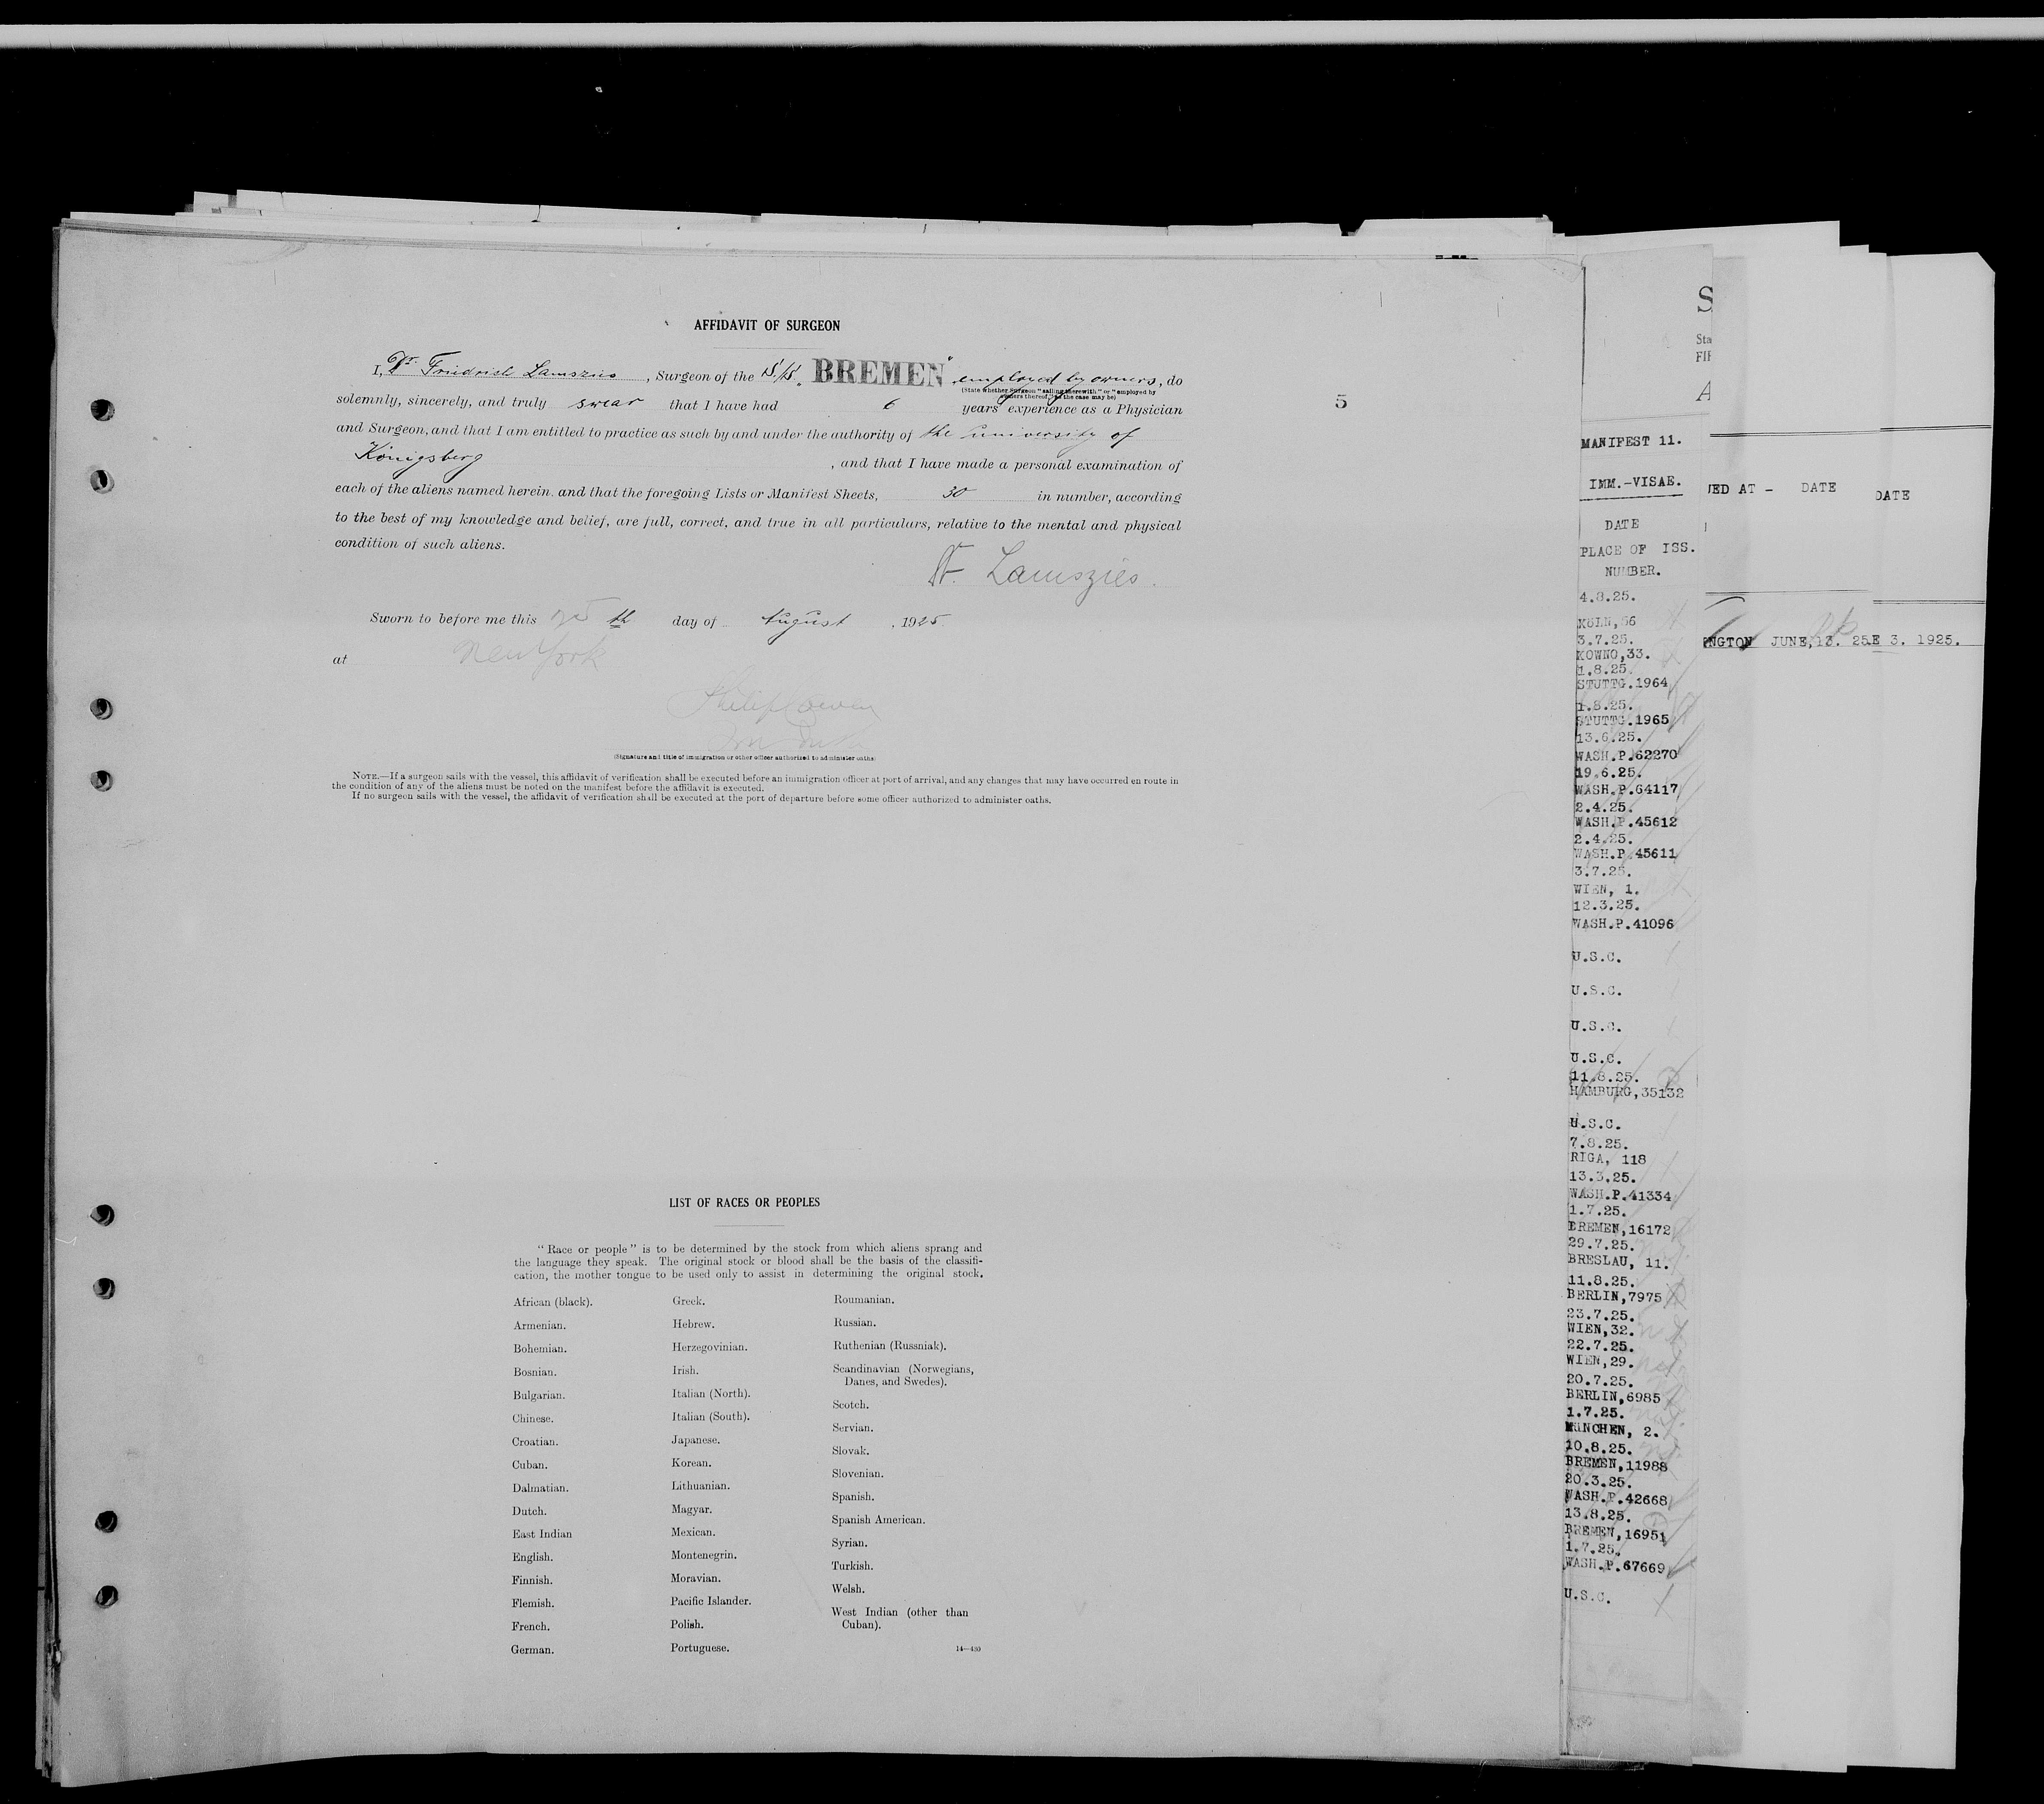 AFFIDAVIT OF SURGEON
I, Dr. Friedrich Lamszies, Surgeon of the S/S. „BREMEN" employed by owners, do
(State whether Surgeon "sailing therewith" or "employed by
owners thereof," as the case may be)
solemnly, sincerely, and truly swear that I have had 6 years' experience as a Physician
and Surgeon, and that I am entitled to practice as such by and under the authority of the university of
Königsberg, and that I have made a personal examination of
each of the aliens named herein. and that the foregoing Lists or Manifest Sheets, 30 in number, according
to the best of my knowledge and belief, are full, correct, and true in all particulars, relative to the mental and physical
condition of such aliens.
Lamszies.
Sworn to before me this 25 th day of August, 1925
at New York
(Signature and title of immigration or other officer authorized to administer oaths)
NOTE.—If a surgeon sails with the vessel, this affidavit of verification shall be executed before an immigration officer at port of arrival, and any changes that may have occurred en route in
the condition of any of the aliens must be noted on the manifest before the affidavit is executed.
If no surgeon sails with the vessel, the affidavit of verification shall be executed at the port of departure before some officer authorized to administer oaths.
5
LIST OF RACES OR PEOPLES
"Race or people" is to be determined by the stock from which aliens sprang and
the language they speak. The original stock or blood shall be the basis of the classifi-
cation, the mother tongue to be used only to assist in determining the original stock.
African (black).
Armenian.
Bohemian.
Bosnian.
Bulgarian.
Chinese.
Croatian.
Cuban.
Dalmatian.
Dutch.
East Indian
English.
Finnish.
Flemish.
French.
German.
Greek.
Hebrew.
Herzegovinian.
Irish.
Italian (North).
Italian (South).
Japanese.
Korean.
Lithuanian.
Magyar.
Mexican.
Montenegrin.
Moravian.
Pacific Islander.
Polish.
Portuguese.
Roumanian.
Russian.
Ruthenian (Russniak).
Scandinavian (Norwegians,
Danes, and Swedes).
Scotch.
Servian.
Slovak.
Slovenian.
Spanish.
Spanish American.
Syrian.
Turkish.
Welsh.
West Indian (other than
Cuban).
14—430
MANIFEST 11.
IMM.-VISAE.
DATE
PLACE OF ISS.
NUMBER.
4.8.25.
KÖLN,56
3.7.25.
KOWNO,33.
1.8.25.
STUTTG.1964
1.8.25.
STUTTG.1965
13.6.25.
WASH.P.62270
19.6.25.
WASH.P.64117
2.4.25.
WASH.P.45612
2.4.25.
WASH.P.45611
3.7.25.
WIEN, 1.
12.3.25.
WASH.P.41096
U.S.C.
U.S.C.
U.S.C.
U.S.C.
11.8.25.
HAMBURG,35132
U.S.C.
7.8.25.
RIGA, 118
13.3.25.
WASH.P.41334
1.7.25.
BREMEN,16172
29.7.25.
BRESLAU, 11.
11.8.25.
BERLIN,7975
23.7.25.
WIEN,32.
22.7.25.
WIEN,29.
20.7.25.
BERLIN,6985
1.7.25.
MÜNCHEN, 2.
10.8.25.
BREMEN,11988
20.3.25.
WASH.P.42668
13.8.25.
BREMEN,16951
1.7.25.
WASH.P.67669
U.S.C.
S
Sta
FIF
A
UED AT - DATE
DATE
NGTON JUNE,13. 25
E 3. 1925.